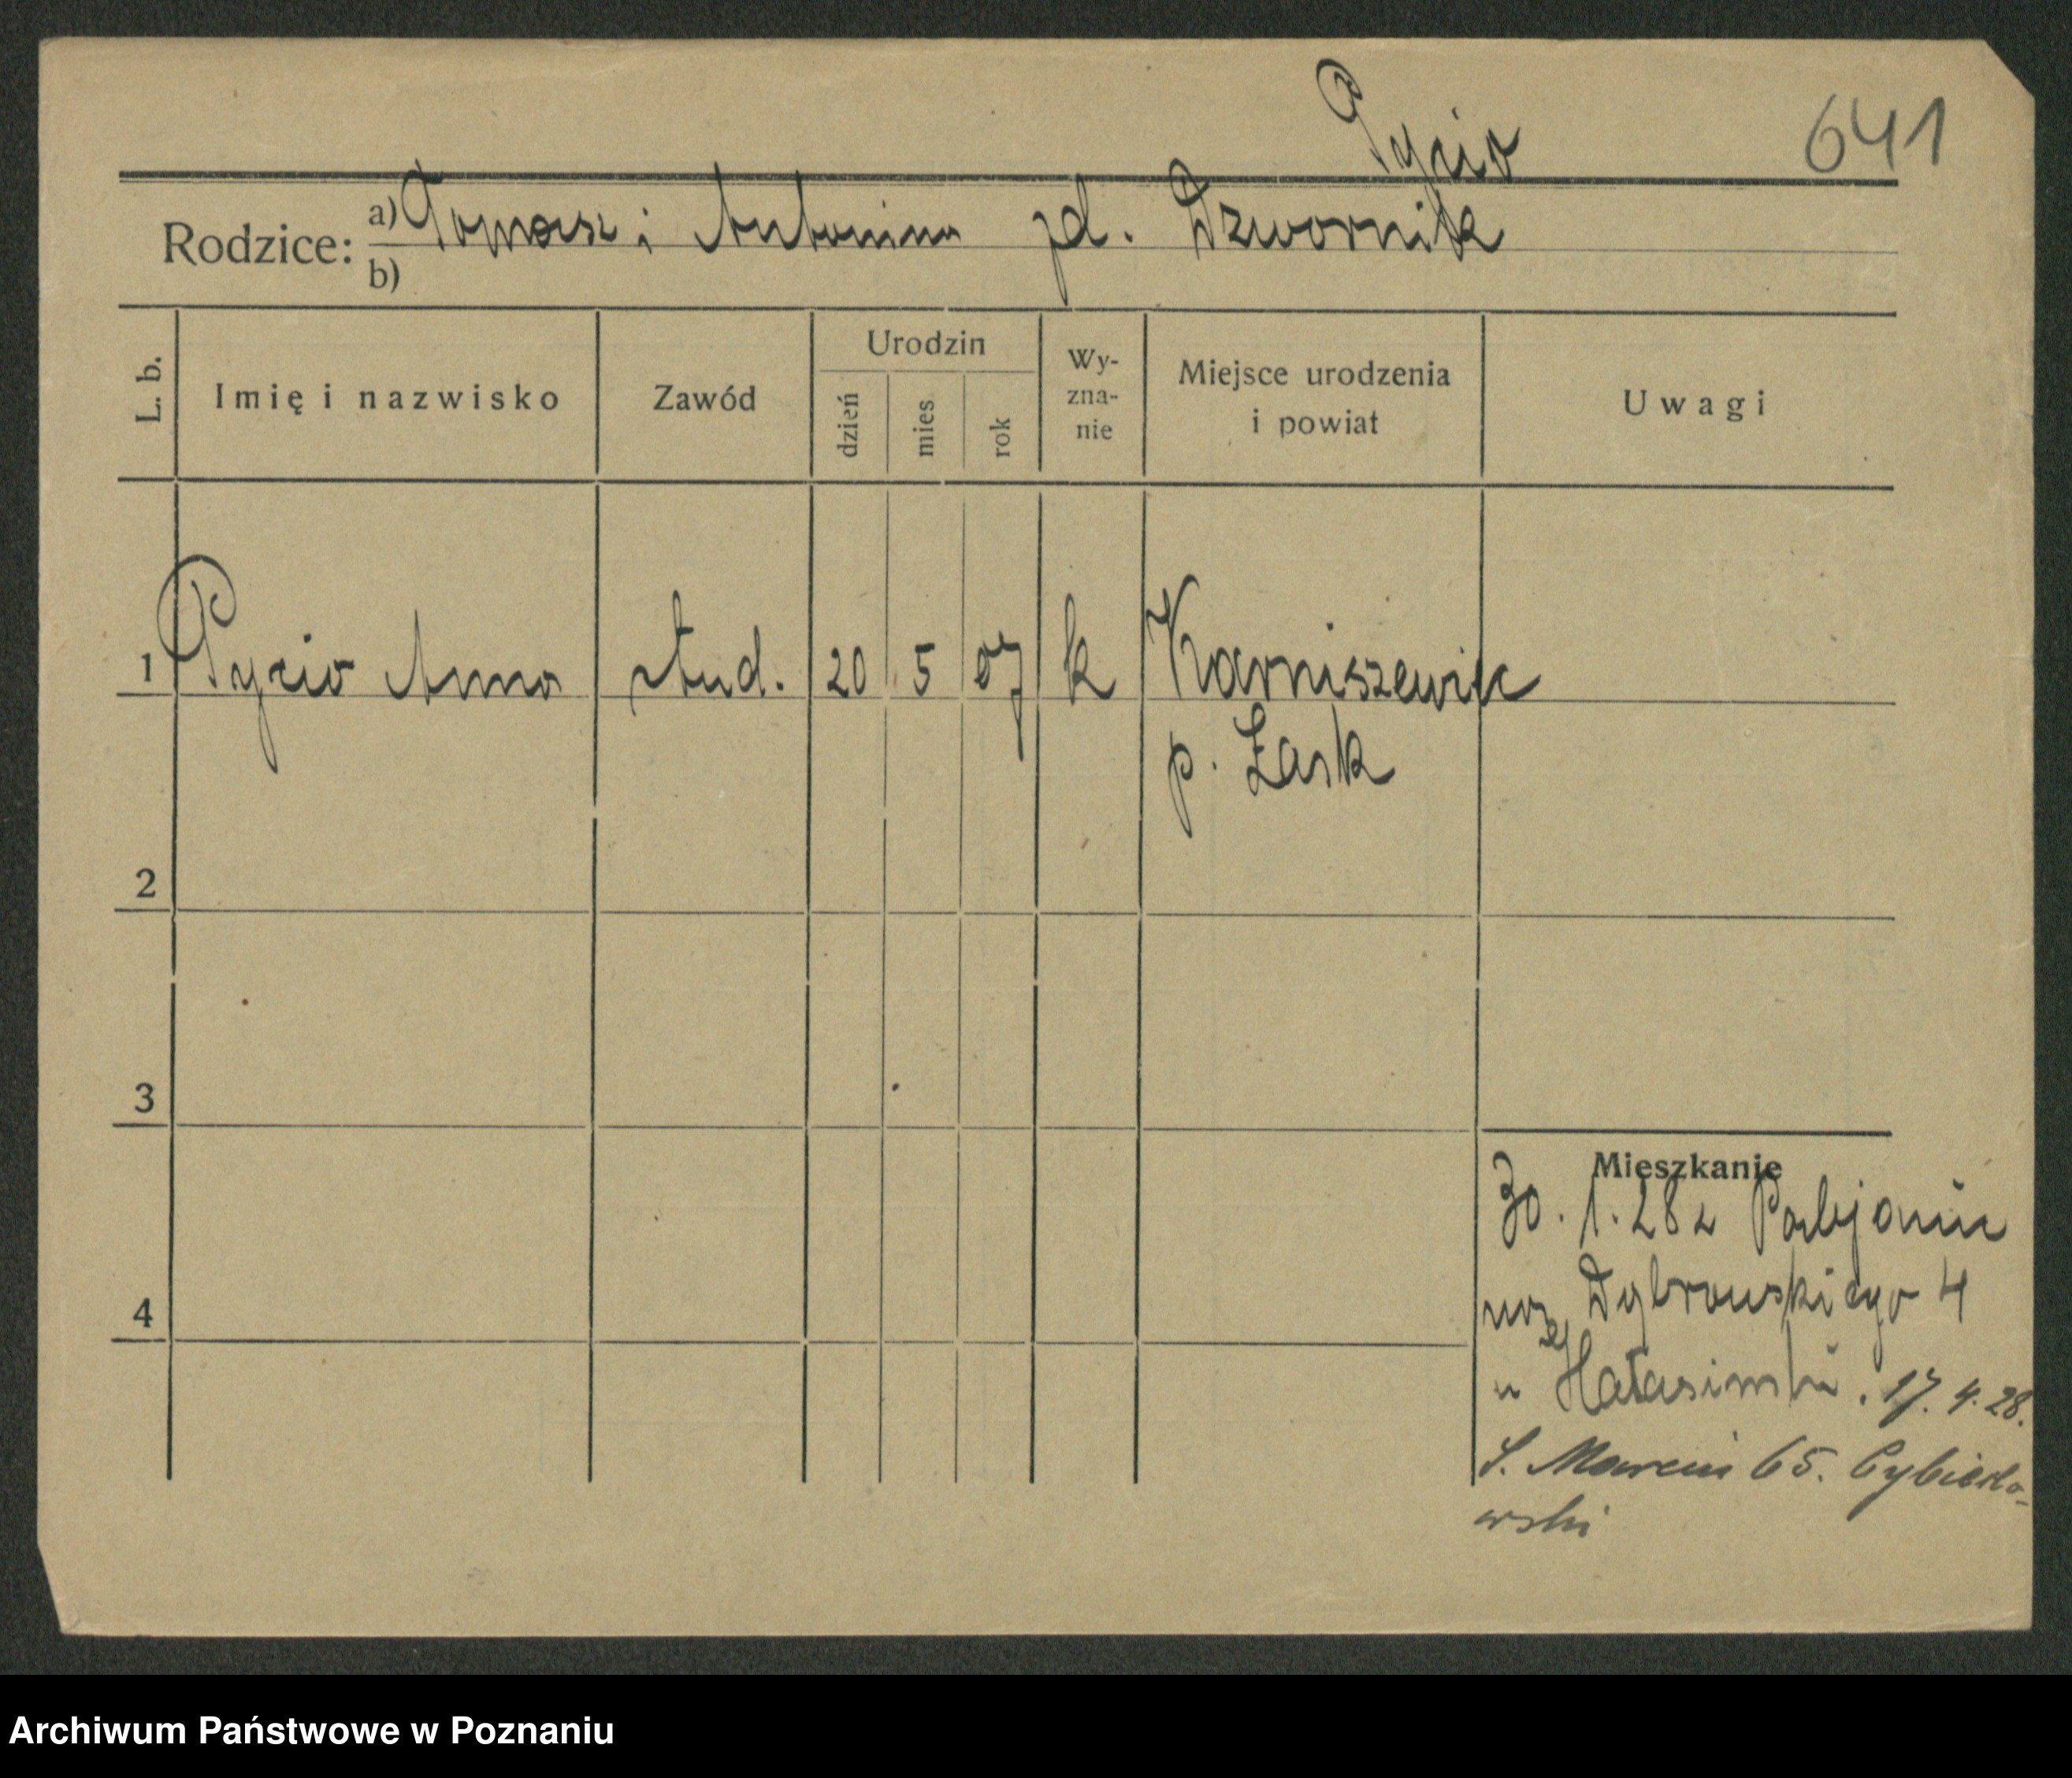 Pycio
641
Rodzice: a) Tomasz i Antonina zd. Dzwornik
b)
L. b. Imię i nazwisko Zawód Urodzin dzień mies rok Wy-zna-nie Miejsce urodzenia i powiat Uwagi
1 Pycio Anna stud. 20 5 07 k Karniszewic
p. Łask
2
3
4
Mieszkanie
30. 1. 28 z Pabjanic
Dąbrowskiego 4
u 17. 4. 28.
S. Marcin 65.
Archiwum Państwowe w Poznaniu